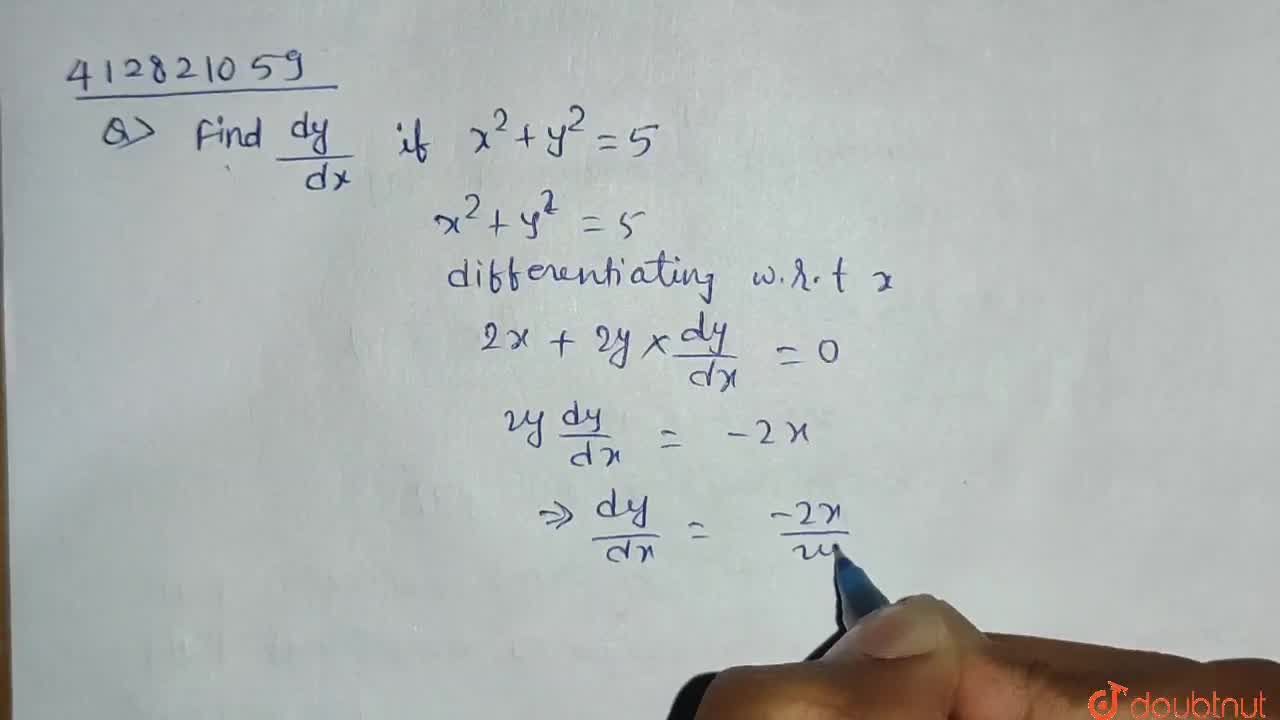 412821059
Q> Find dy/dx if x² + y² = 5
x² + y² = 5
differentiating w.r.t x
2x + 2y × dy/dx = 0
2y dy/dx = -2x
⇒ dy/dx = -2x/2y
doubtnut